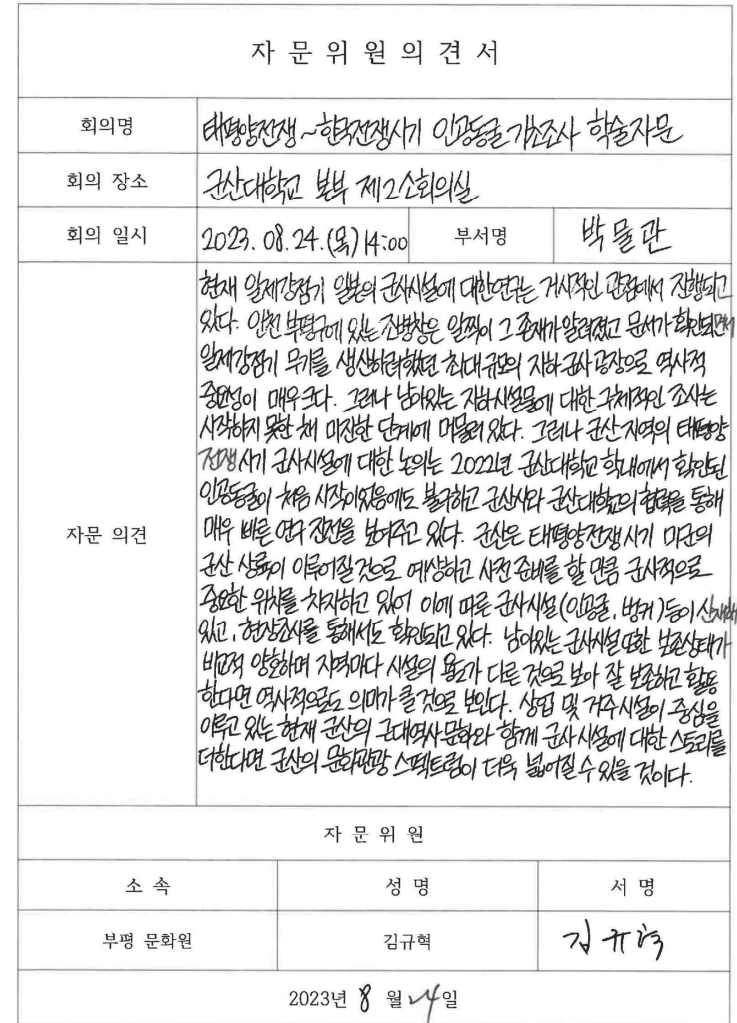 자 문 위 원 의 견 서
회의명 태평양전쟁~한국전쟁시기 인공동굴 기초조사 학술자문
회의 장소 군산대학교 본부 제2소회의실
회의 일시 2023. 08. 24.(목) 14:00 부서명 박물관
자문 의견
현재 일제강점기 일본의 군사시설에 대한연구는 거시적인 관점에서 진행되고
있다. 인천 부평구에 있는 조병창은 일찍이 그 존재가 알려졌고 문서가 확인되면서
일제강점기 무기를 생산하려했던 최대규모의 지하군사공장으로 역사적
중요성이 매우크다. 그러나 남아있는 지하시설물에 대한 구체적인 조사는
시작하지 못한 채 미진한 단계에 머물러 있다. 그러나 군산지역의 태평양
전쟁시기 군사시설에 대한 논의는 2022년 군산대학교 학내에서 확인된
인공동굴이 처음 시작이었음에도 불구하고 군산시와 군산대학교의 협력을 통해
매우 빠른 연구 진전을 보여주고 있다. 군산은 태평양전쟁시기 미군의
군산 상륙이 이루어질것으로 예상하고 사전 준비를 할 만큼 군사적으로
중요한 위치를 차지하고 있어 이에 따른 군사시설(인공굴, 벙커)등이 산재해
있고, 현장조사를 통해서도 확인되고 있다. 남아있는 군사시설 또한 보존상태가
비교적 양호하며 지역마다 시설의 용도가 다른 것으로 보아 잘 보존하고 활용
한다면 역사적으로도 의미가 클 것으로 보인다. 상업 및 거주시설이 중심을
이루고 있는 현재 군산의 근대역사문화와 함께 군사시설에 대한 스토리를
더한다면 군산의 문화관광 스펙트럼이 더욱 넓어질 수 있을 것이다.
자 문 위 원
소 속 성 명 서 명
부평 문화원 김규혁 김규혁
2023년 8 월 24일